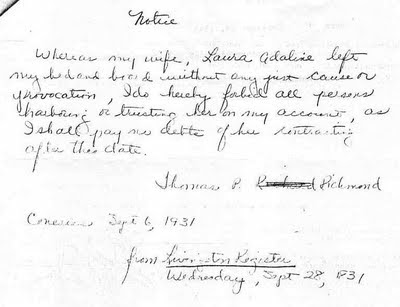 Notice
Whereas my wife, Laura Adaline left
my bed and board without any just cause or
provocation, I do hereby forbid all persons
harboring or trusting her on my account, as
I shall pay no debts of her contracting
after this date.
Thomas P. Richmond
Conesus Sept 6, 1931
from Livingston Register
Wednesday, Sept 28, 1831